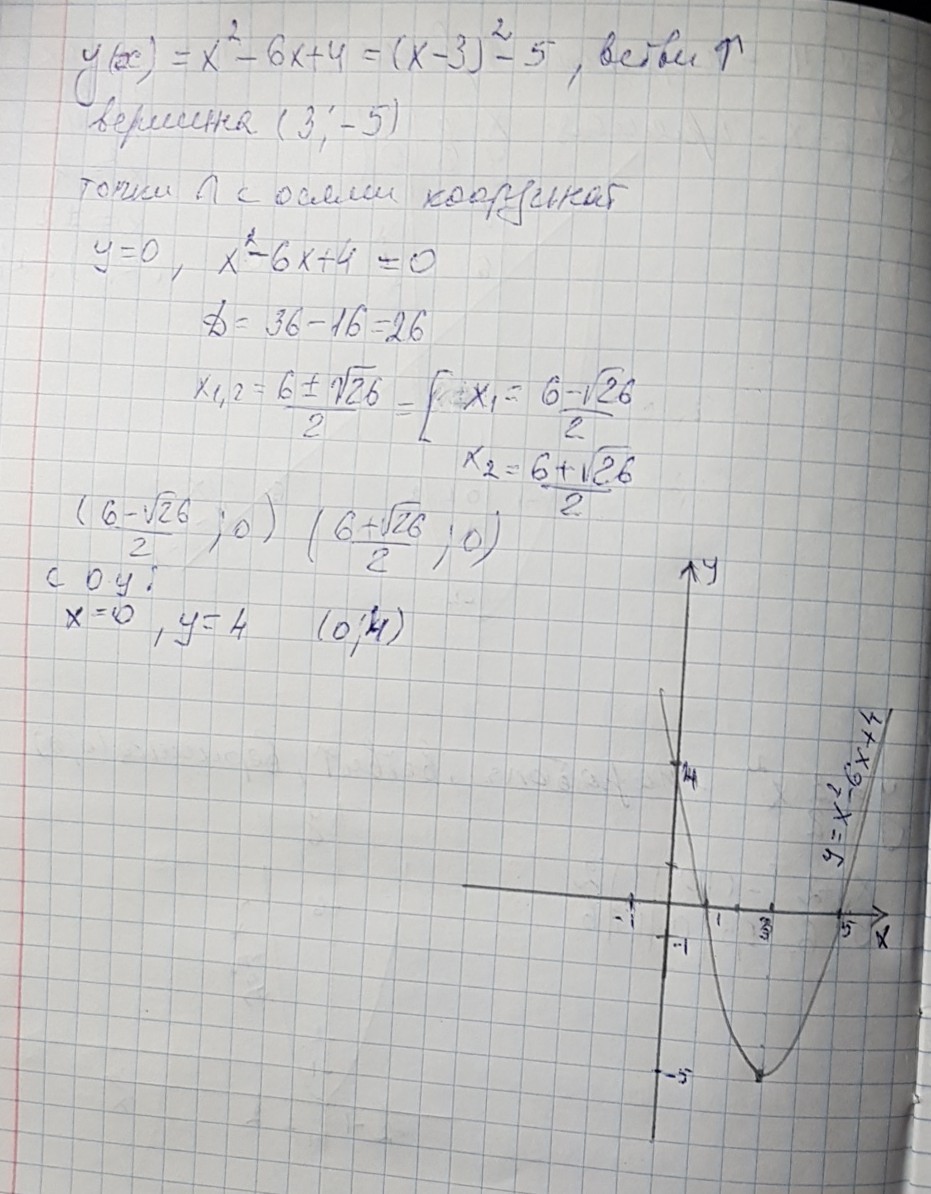 y(x) = x² - 6x + 4 = (x-3)² - 5, ветви ↑
вершина (3; -5)
точки ∩ с осями координат
y=0, x² - 6x + 4 = 0
D = 36 - 16 = 26
x₁,₂ = (6 ± √26)/2 = [ x₁ = (6 - √26)/2
x₂ = (6 + √26)/2
((6 - √26)/2 ; 0) ((6 + √26)/2 ; 0)
с Oy:
x=0, y=4 (0; 4)
y
4
y = x² - 6x + 4
-1
1
3
5
x
-1
-5